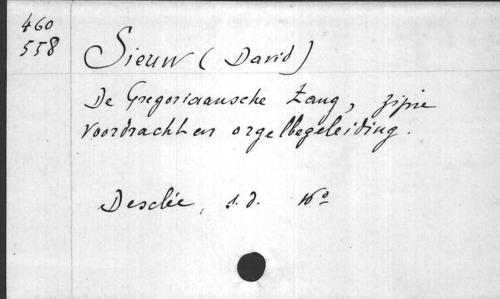 460
558
Sieuw (David)
De Gregoriaansche Zang, zijne
voordracht en orgelbegeleiding.
Desclée, s.d. 16°